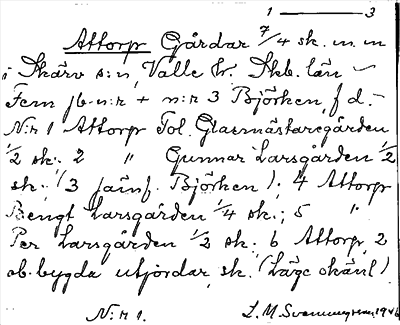 1 — 3
Attorp Gårdar 7/4 sk. m. m
i Skärv s:n, Valle hr. Skb. län –
Fem jb-n:r + n:r 3 Björken, f d. –
N:r 1 Attorp Tol. Glasmästaregården
1/2 sk. 2 " Gunnar Larsgården 1/2
sk. (3 jämf. Björken); 4 Attorp
Bengt Larsgården 1/4 sk.; 5 "
Per Larsgården 1/2 sk. 6 Attorp, 2
ob. bygda utjordar, sk. (Läge okänl)
N:r 1. L. M. Svenungsson, 1946